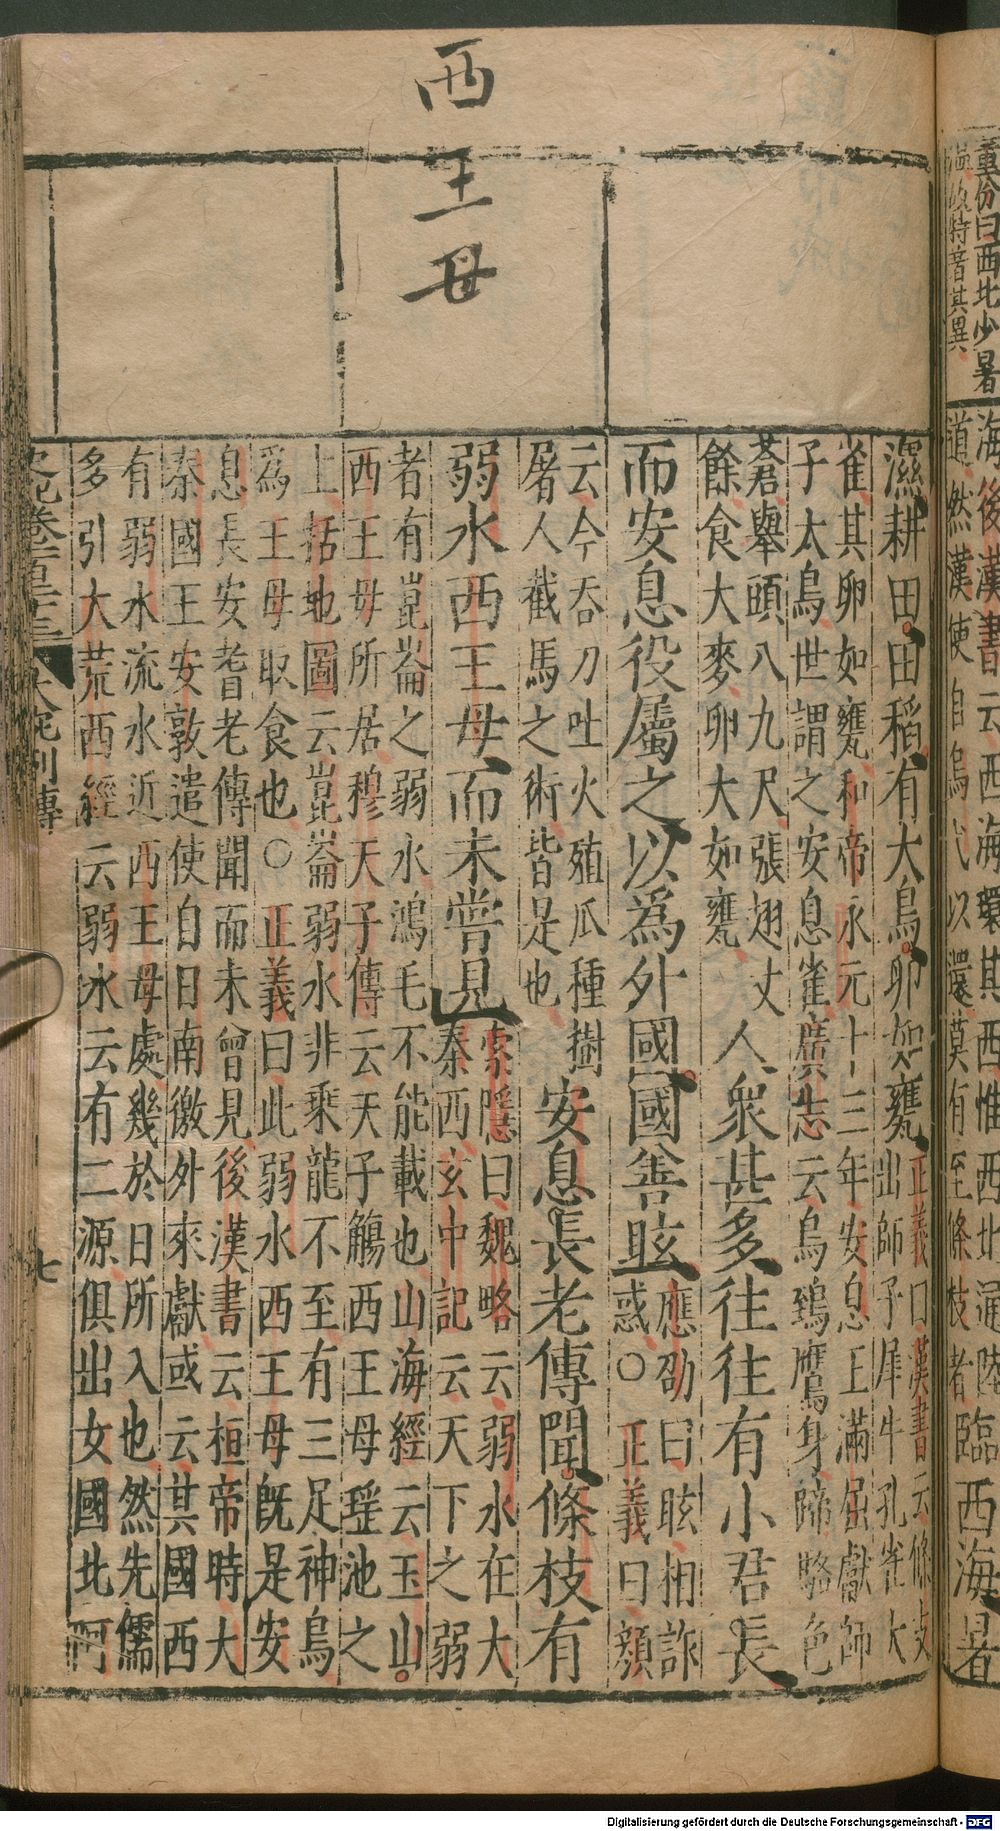 董份曰西北少暑
溫故特著其異
海後漢書云西海環其西惟西北通陸
道然漢使自烏弋以還莫有至條枝者
臨西海暑
西王母
濕耕田田稻有大鳥卵如甕
正義曰漢書云條支
出師子犀牛孔雀大
雀其卵如甕和帝永元十三年安息王滿屈獻師
子大鳥世謂之安息雀廣志云鳥鵄鷹身蹄駱色
蒼舉頭八九尺張翅丈
餘食大麥卵大如甕
人衆甚多往往有小君長
而安息役屬之以爲外國國善眩
應劭曰眩相詐
惑○正義曰顔
云今吞刀吐火殖瓜種樹
屠人截馬之術皆是也
安息長老傳聞條枝有
弱水西王母而未嘗見
索隱曰魏略云弱水在大
秦西玄中記云天下之弱
者有崑崙之弱水鴻毛不能載也山海經云玉山
西王母所居穆天子傳云天子觴西王母瑶池之
上括地圖云崑崙弱水非乘龍不至有三足神烏
為王母取食也○正義曰此弱水西王母既是安
息長安耆老傳聞而未曾見後漢書云桓帝時大
秦國王安敦遣使自日南徼外來獻或云其國西
有弱水流水近西王母處幾於日所入也然先儒
多引大荒西經云弱水云有二源俱出女國北阿
史記卷一百二十三 大宛列傳 七
Digitalisierung gefördert durch die Deutsche Forschungsgemeinschaft - DFG